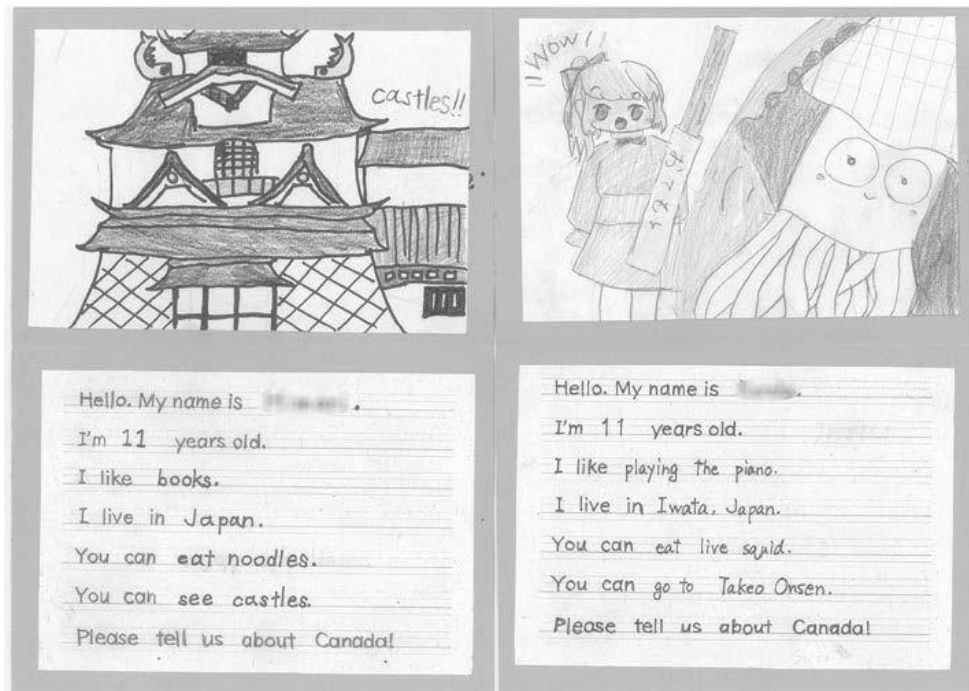 castles!!
!!WOW!!
Hello. My name is .
I'm 11 years old.
I like books.
I live in Japan.
You can eat noodles.
You can see castles.
Please tell us about Canada!
Hello. My name is .
I'm 11 years old.
I like playing the piano.
I live in Iwata, Japan.
You can eat live squid.
You can go to Takeo Onsen.
Please tell us about Canada!